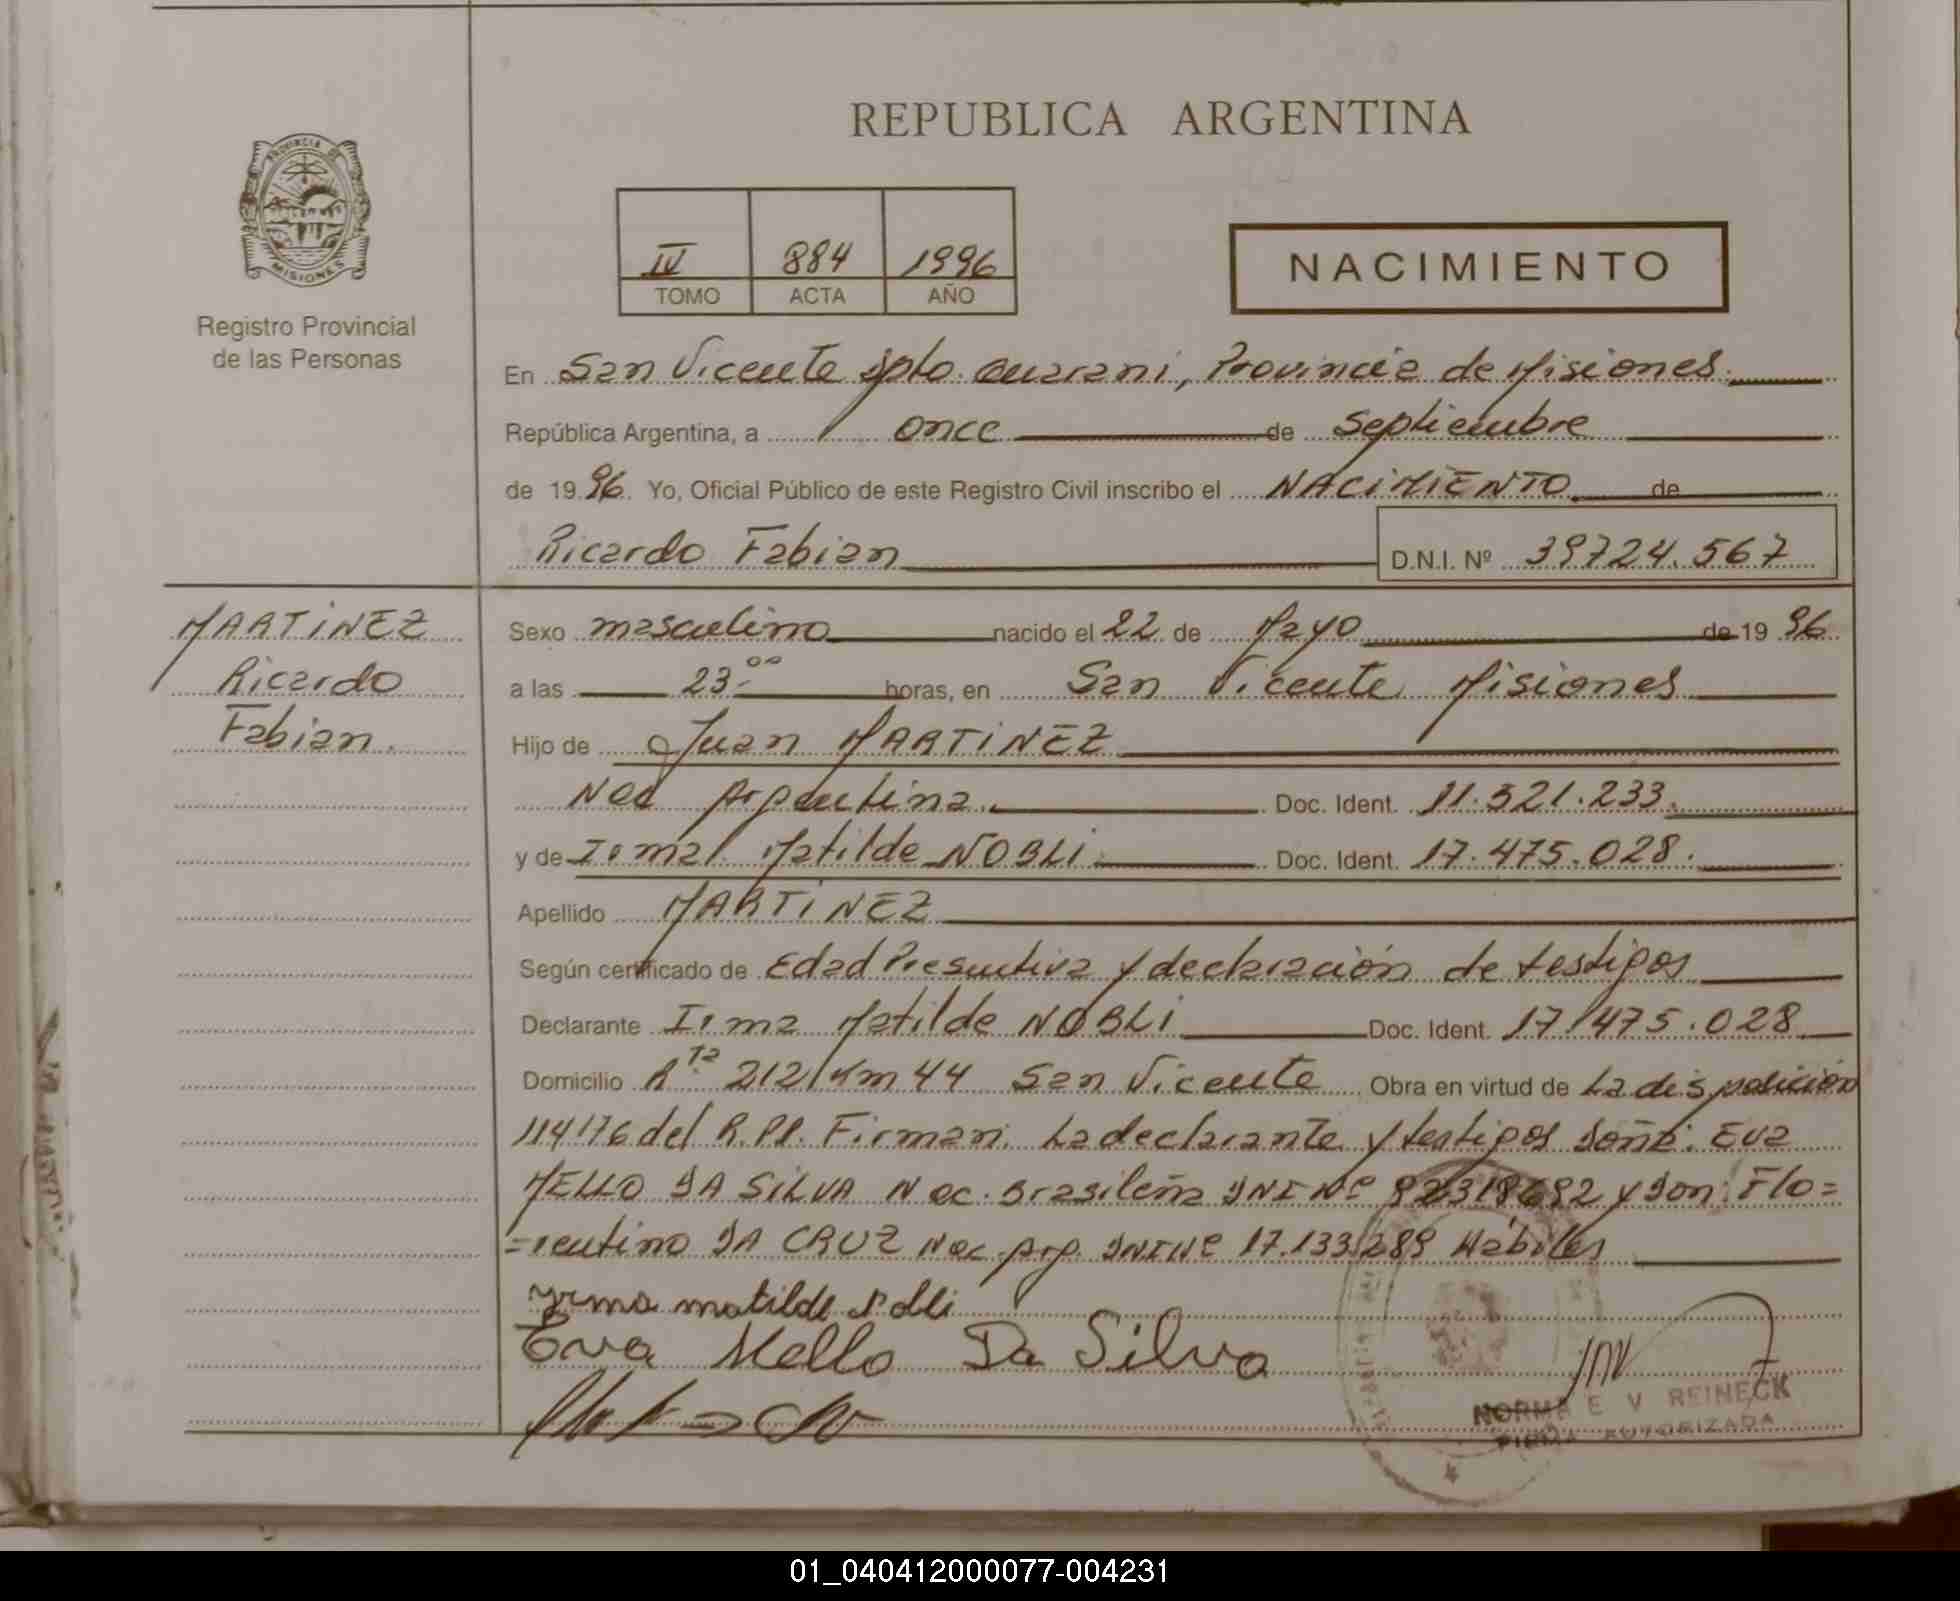 REPUBLICA ARGENTINA
PROVINCIA DE
MISIONES
Registro Provincial
de las Personas
IV 884 1996
TOMO ACTA AÑO
NACIMIENTO
En San Vicente Dpto. Guarani, Provincia de Misiones.
República Argentina, a once de Septiembre
de 1996. Yo, Oficial Público de este Registro Civil inscribo el NACIMIENTO de
Ricardo Fabian D.N.I. Nº 39724.567
MARTINEZ
Ricardo
Fabian.
Sexo masculino nacido el 22 de Mayo de 19 96
a las 23.- 00 horas, en San Vicente Misiones
Hijo de Juan MARTINEZ
Nac Argentina. Doc. Ident. 11.321.233.
y de Irma Matilde NOBLI. Doc. Ident. 17.475.028.
Apellido MARTINEZ
Según certificado de Edad Presuntiva y declaración de testigos
Declarante Irma Matilde NOBLI Doc. Ident. 17.475.028
Domicilio Rta 212 Km 44 San Vicente Obra en virtud de La disposición
114176 del R.PP. Firman: La declarante y testigos Doña: Eva
MELLO DA SILVA Nac. Brasileña DNI Nº y Don: Flo=
=rentino DA CRUZ Nac. Arg. DNI Nº 17.133.289 Hábiles
yrma matilde
Eva Mello Da Silva
NORMA E V REINECK
FIRMA AUTORIZADA
01_040412000077-004231